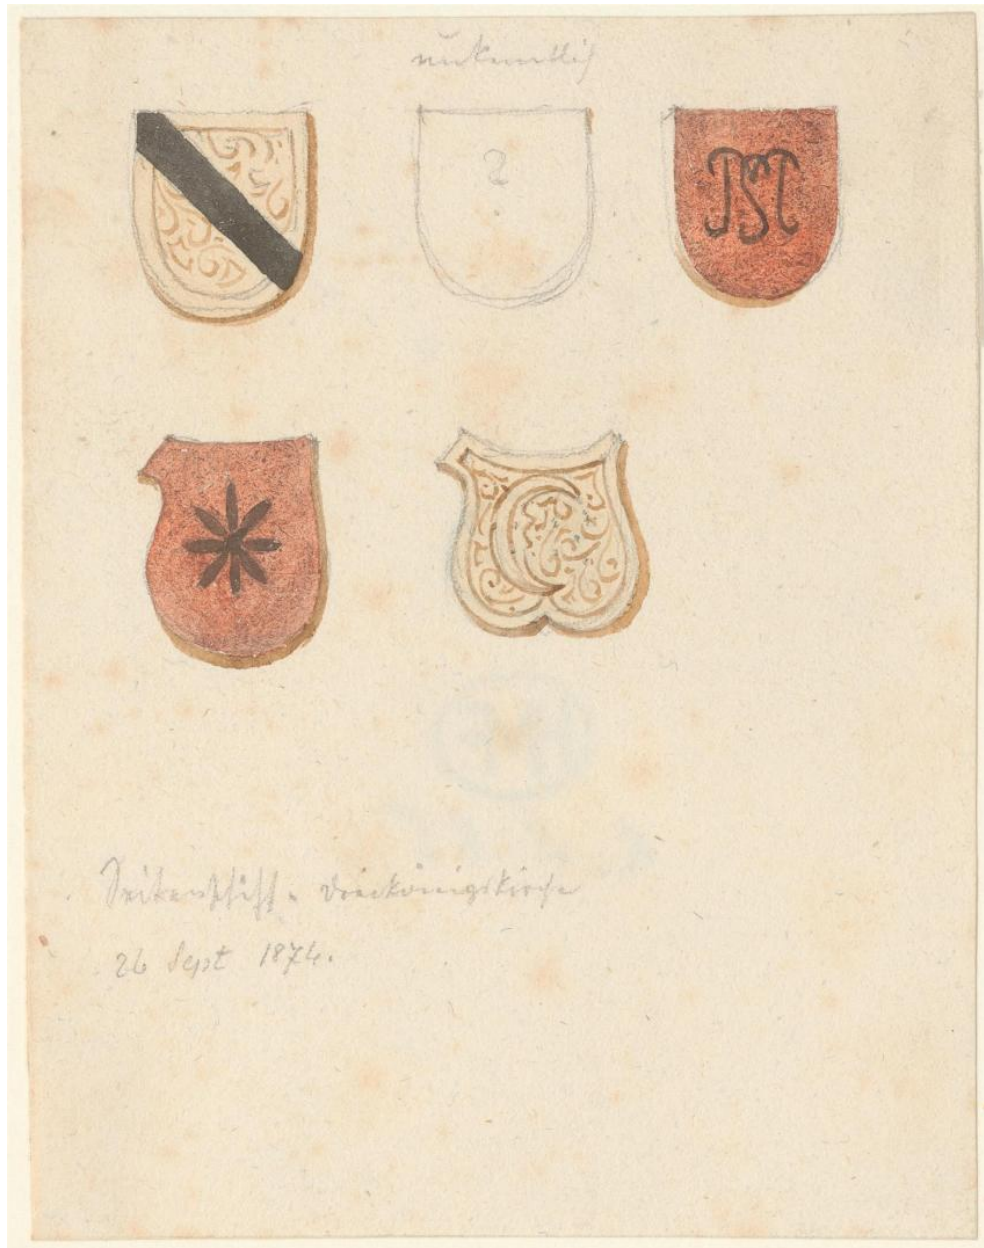 unkentlich
?
Seitenschiff - Dreikönigskirche
26 Sept 1874.